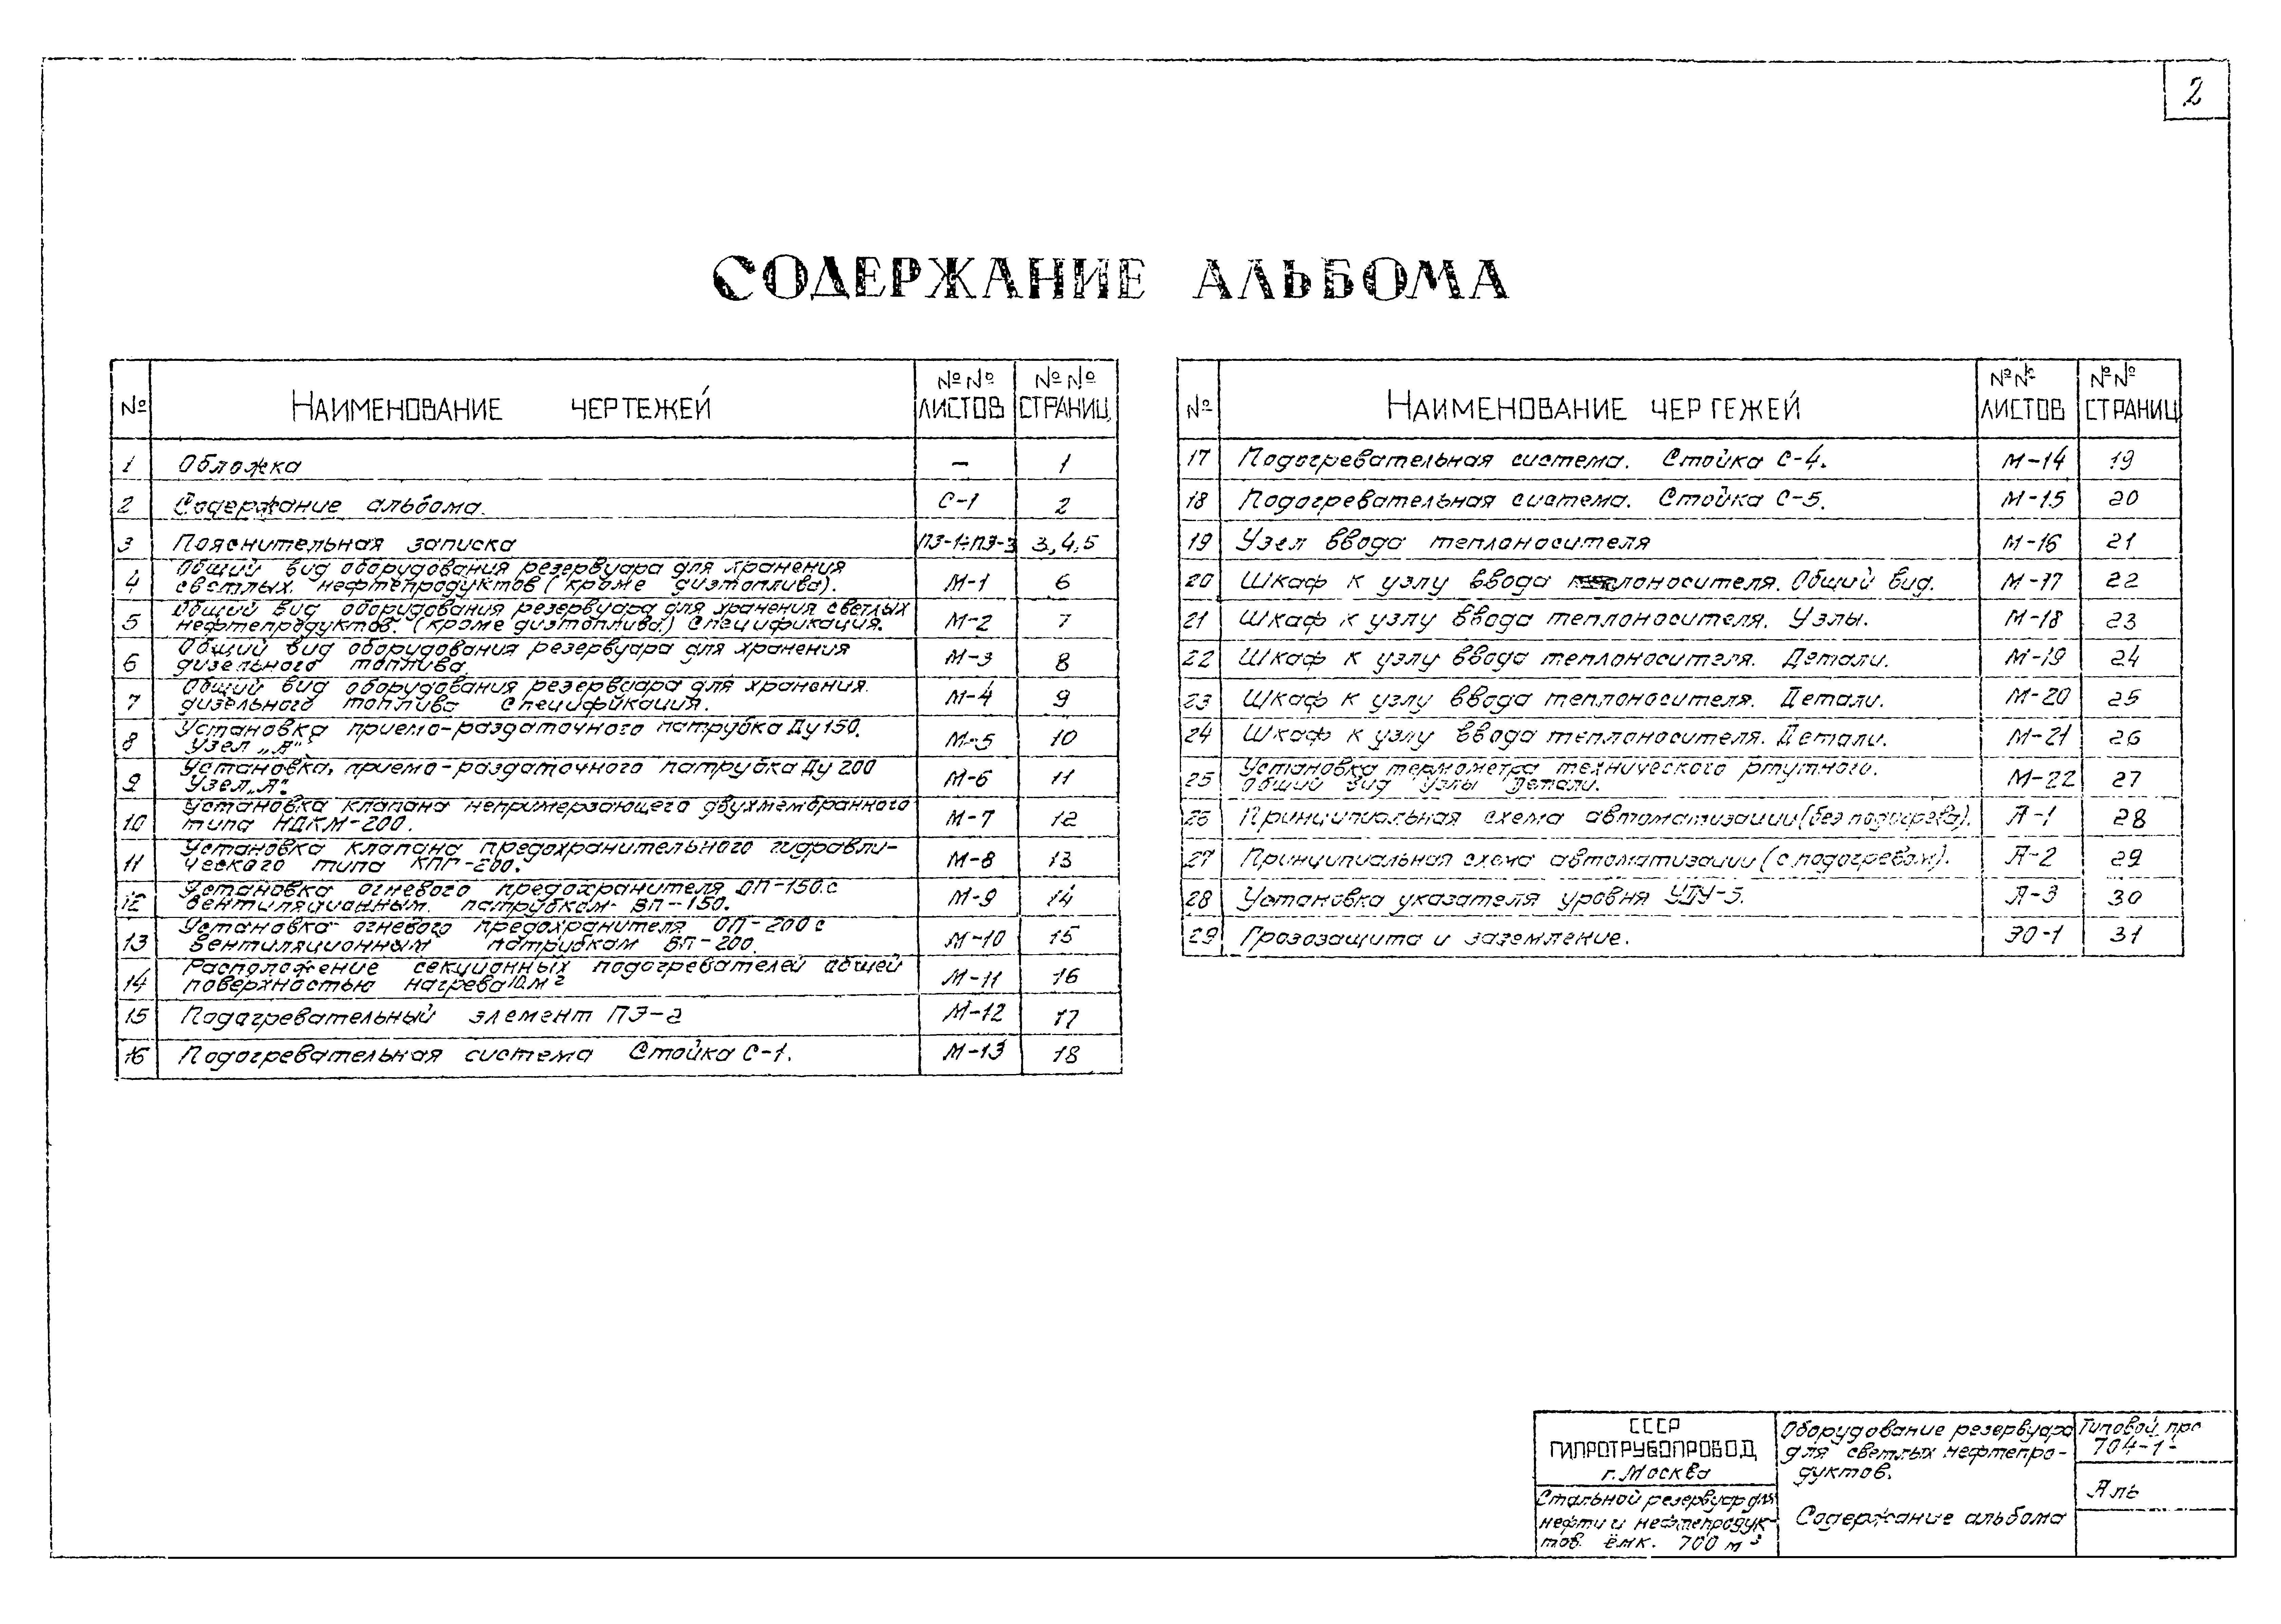 2
СОДЕРЖАНИЕ АЛЬБОМА
№ НАИМЕНОВАНИЕ ЧЕРТЕЖЕЙ №№ ЛИСТОВ №№ СТРАНИЦ
1 Обложка – 1
2 Содержание альбома. С-1 2
3 Пояснительная записка ПЗ-1÷ПЗ-3 3,4,5
4 Общий вид оборудования резервуара для хранения
светлых нефтепродуктов (кроме дизтоплива). М-1 6
5 Общий вид оборудования резервуара для хранения светлых
нефтепродуктов. (кроме дизтоплива.) Спецификация. М-2 7
6 Общий вид оборудования резервуара для хранения
дизельного топлива М-3 8
7 Общий вид оборудования резервуара для хранения
дизельного топлива Спецификация. М-4 9
8 Установка приемо-раздаточного патрубка Ду 150.
Узел „Я". М-5 10
9 Установка, приемо-раздаточного патрубка Ду 200
Узел „Я". М-6 11
10 Установка клапана непримерзающего двухмембранного
типа НДКМ-200. М-7 12
11 Установка клапана предохранительного гидравли-
ческого типа КПГ-200. М-8 13
12 Установка огневого предохранителя ОП-150 с
вентиляционным патрубком ВП-150. М-9 14
13 Установка огневого предохранителя ОП-200 с
вентиляционным патрубком ВП-200. М-10 15
14 Расположение секционных подогревателей общей
поверхностью нагрева 10 м² М-11 16
15 Подогревательный элемент ПЭ-2 М-12 17
16 Подогревательная система Стойка С-1. М-13 18
№ НАИМЕНОВАНИЕ ЧЕРТЕЖЕЙ №№ ЛИСТОВ №№ СТРАНИЦ
17 Подогревательная система. Стойка С-4. М-14 19
18 Подогревательная система. Стойка С-5. М-15 20
19 Узел ввода теплоносителя М-16 21
20 Шкаф к узлу ввода теплоносителя. Общий вид. М-17 22
21 Шкаф к узлу ввода теплоносителя. Узлы. М-18 23
22 Шкаф к узлу ввода теплоносителя. Детали. М-19 24
23 Шкаф к узлу ввода теплоносителя. Детали. М-20 25
24 Шкаф к узлу ввода теплоносителя. Детали. М-21 26
25 Установка термометра технического ртутного.
Общий вид Узлы Детали. М-22 27
26 Принципиальная схема автоматизации (без подогрева). Я-1 28
27 Принципиальная схема автоматизации (с подогревом). Я-2 29
28 Установка указателя уровня УДУ-5. Я-3 30
29 Грозозащита и заземление. ЭО-1 31
СССР
ГИПРОТРУБОПРОВОД
г. Москва
Стальной резервуар для
нефти и нефтепродук-
тов ёмк. 700 м³
Оборудование резервуара
для светлых нефтепро-
дуктов.
Содержание альбома
Типовой про
704-1-
Яль